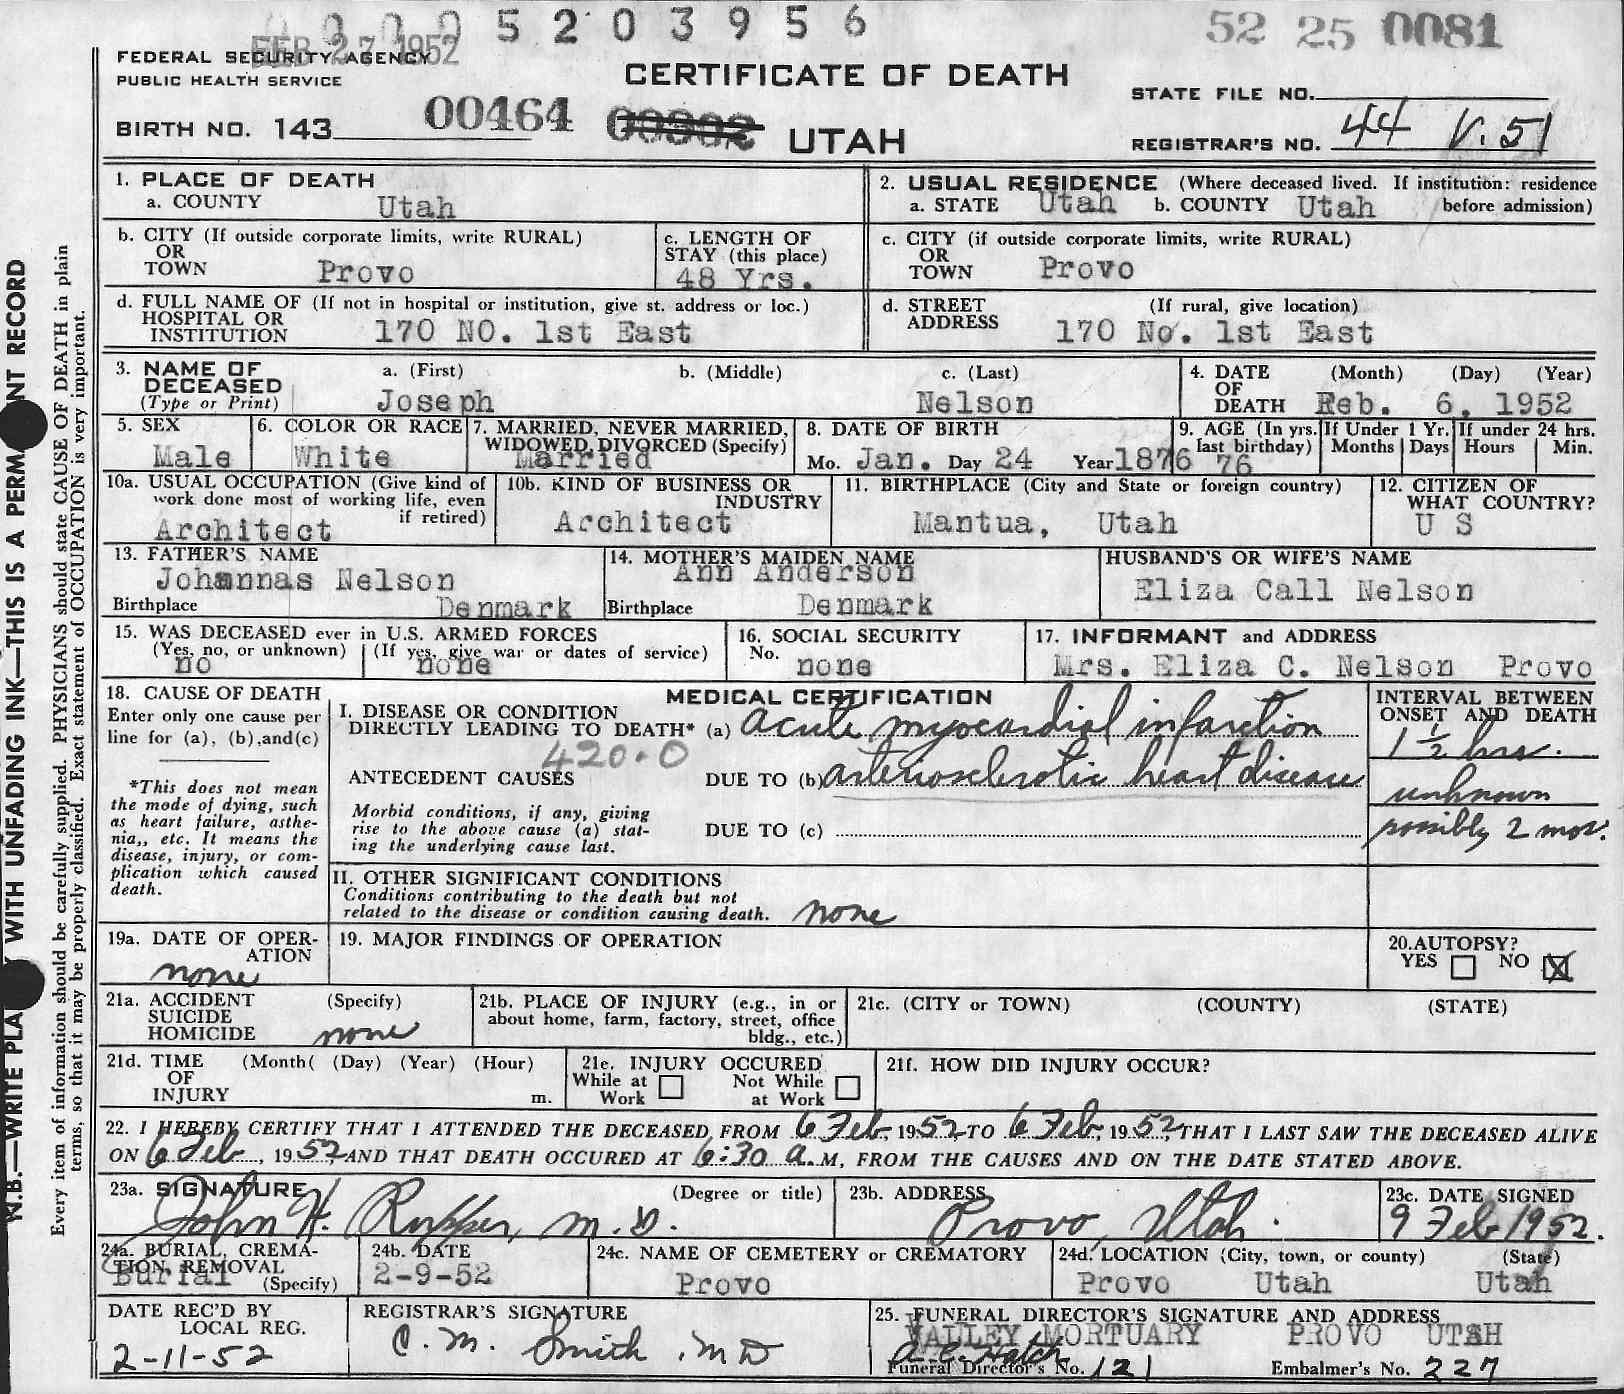 0 0 0 5 2 0 3 9 5 6
52 25 0081
FEB 27 1952
FEDERAL SECURITY AGENCY
PUBLIC HEALTH SERVICE
CERTIFICATE OF DEATH
STATE FILE NO.
BIRTH NO. 143 00464 00302 UTAH
REGISTRAR'S NO. 44 V. 51
1. PLACE OF DEATH
a. COUNTY Utah
2. USUAL RESIDENCE (Where deceased lived. If institution: residence before admission)
a. STATE Utah b. COUNTY Utah
b. CITY (If outside corporate limits, write RURAL)
OR
TOWN Provo
c. LENGTH OF
STAY (this place)
48 Yrs.
c. CITY (if outside corporate limits, write RURAL)
OR
TOWN Provo
d. FULL NAME OF (If not in hospital or institution, give st. address or loc.)
HOSPITAL OR
INSTITUTION 170 NO. 1st East
d. STREET (If rural, give location)
ADDRESS 170 No. 1st East
3. NAME OF
DECEASED
(Type or Print)
a. (First) b. (Middle) c. (Last)
Joseph Nelson
4. DATE (Month) (Day) (Year)
OF
DEATH Feb. 6, 1952
5. SEX
Male
6. COLOR OR RACE
White
7. MARRIED, NEVER MARRIED,
WIDOWED, DIVORCED (Specify)
Married
8. DATE OF BIRTH
Mo. Jan. Day 24 Year 1876
9. AGE (In yrs.
last birthday)
76
If Under 1 Yr.
Months Days
If under 24 hrs.
Hours Min.
10a. USUAL OCCUPATION (Give kind of
work done most of working life, even
if retired)
Architect
10b. KIND OF BUSINESS OR
INDUSTRY
Architect
11. BIRTHPLACE (City and State or foreign country)
Mantua, Utah
12. CITIZEN OF
WHAT COUNTRY?
U S
13. FATHER'S NAME
Johannas Nelson
Birthplace Denmark
14. MOTHER'S MAIDEN NAME
Ann Anderson
Birthplace Denmark
HUSBAND'S OR WIFE'S NAME
Eliza Call Nelson
15. WAS DECEASED ever in U.S. ARMED FORCES
(Yes, no, or unknown) (If yes, give war or dates of service)
no none
16. SOCIAL SECURITY
No. none
17. INFORMANT and ADDRESS
Mrs. Eliza C. Nelson Provo
18. CAUSE OF DEATH
Enter only one cause per
line for (a), (b),and(c)
*This does not mean
the mode of dying, such
as heart failure, asthe-
nia,, etc. It means the
disease, injury, or com-
plication which caused
death.
MEDICAL CERTIFICATION
I. DISEASE OR CONDITION
DIRECTLY LEADING TO DEATH* (a) acute myocardial infarction
420.0
ANTECEDENT CAUSES DUE TO (b) arteriosclerotic heart disease
Morbid conditions, if any, giving
rise to the above cause (a) stat-
ing the underlying cause last.
DUE TO (c)
INTERVAL BETWEEN
ONSET AND DEATH
1 1/2 hrs.
unknown
possibly 2 mos.
II. OTHER SIGNIFICANT CONDITIONS
Conditions contributing to the death but not
related to the disease or condition causing death. none
19a. DATE OF OPER-
ATION
none
19. MAJOR FINDINGS OF OPERATION
20.AUTOPSY?
YES NO X
21a. ACCIDENT (Specify)
SUICIDE
HOMICIDE none
21b. PLACE OF INJURY (e.g., in or
about home, farm, factory, street, office
bldg., etc.)
21c. (CITY or TOWN) (COUNTY) (STATE)
21d. TIME (Month( (Day) (Year) (Hour)
OF
INJURY m.
21e. INJURY OCCURED
While at Work Not While at Work
21f. HOW DID INJURY OCCUR?
22. I HEREBY CERTIFY THAT I ATTENDED THE DECEASED FROM 6 Feb, 1952 TO 6 Feb, 1952, THAT I LAST SAW THE DECEASED ALIVE
ON 6 Feb, 1952, AND THAT DEATH OCCURED AT 6:30 a.M, FROM THE CAUSES AND ON THE DATE STATED ABOVE.
23a. SIGNATURE (Degree or title)
John H. Rupper, M.D.
23b. ADDRESS
Provo, Utah.
23c. DATE SIGNED
9 Feb 1952.
24a. BURIAL, CREMA-
TION, REMOVAL
(Specify)
Burial
24b. DATE
2-9-52
24c. NAME OF CEMETERY or CREMATORY
Provo
24d. LOCATION (City, town, or county) (State)
Provo Utah Utah
DATE REC'D BY
LOCAL REG.
2-11-52
REGISTRAR'S SIGNATURE
C. M. Smith, MD
25. FUNERAL DIRECTOR'S SIGNATURE AND ADDRESS
VALLEY MORTUARY PROVO UTAH
Hatch
Funeral Director's No. 121 Embalmer's No. 227
N.B.—WRITE PLA WITH UNFADING INK—THIS IS A PERM NT RECORD
Every item of information should be carefully supplied. PHYSICIANS should state CAUSE OF DEATH in plain
terms, so that it may be properly classified. Exact statement of OCCUPATION is very important.